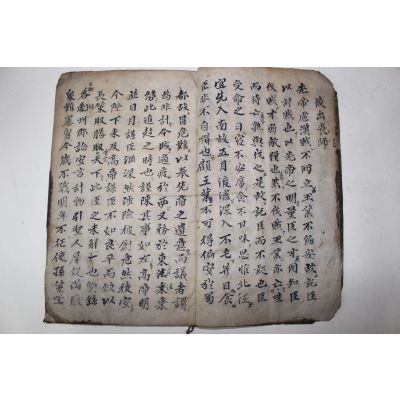 後出表師
先帝慮漢賊不兩立王業不偏安故託臣
以討賊也以先帝之明量臣之才固知臣
伐賊才弱敵彊也然不伐賊王業亦亡惟
而待亡孰與伐之是故託臣而不疑也臣
受命之日寢不安席食不甘味思惟北征
宜先入南故五月渡瀘深入不毛幷日而食
臣非不自惜也顧王業不可得偏安於蜀
都故冒危難以奉先帝之遺意而議者謂
爲非計今賊適疲於西又務於東兵法乘
勞此進趨之時也謹陳其事如左高帝明
並日月謀臣淵深然涉險被創危然後安
今陛下未及高帝謀臣不如良平而欲以
長策取勝坐定天下此臣之未解一也劉繇
王朗各據州郡論安言計動引聖人群疑滿腹
衆難塞胸今歲不戰明年不征使孫策坐